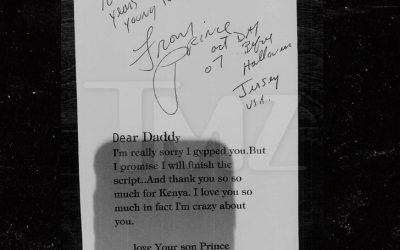 years
young
From
Prince
oct
07
DAY
Before
Halloween
Jersey
USA.
TMZ
Dear Daddy
I'm really sorry I gypped you.But
I promise I will finish the
script..And thank you so so
much for Kenya. I love you so
much in fact I'm crazy about
you.
love Your son Prince